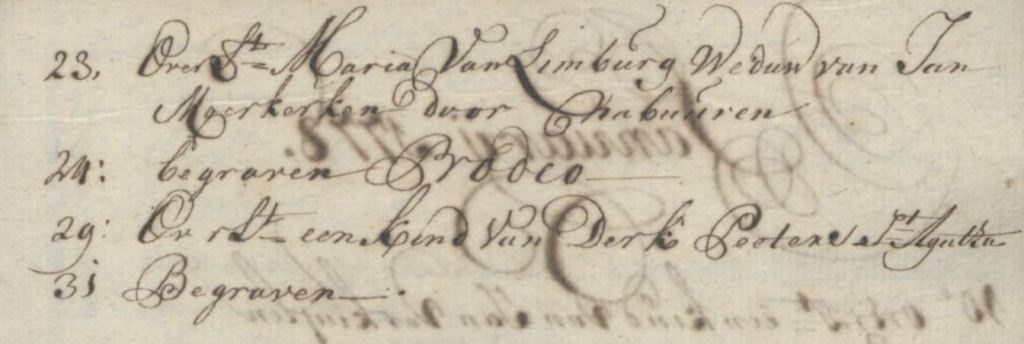 23, Over St= Maria Van Limburg Weduw van Jan
Moerkerken door Nabuuren
24: begraven Prodeo
29: Over St= een kind Van Derk Peeters St Agatha
31 Begraven